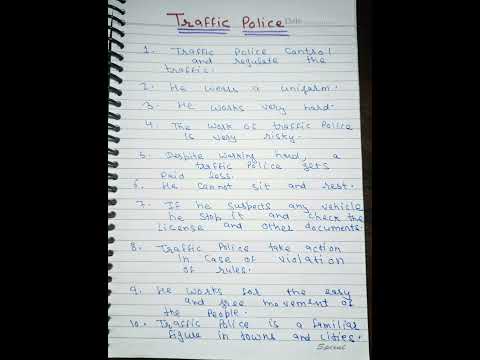 Traffic Police
Date
1. Traffic Police Control
and regulate the
traffic.
2. He wears a uniform.
3. He works very hard.
4. The work of traffic Police
is very risky.
5. Despite working hard, a
traffic Police gets
Paid less.
6. He cannot sit and rest.
7. If he suspects any vehicle
he stop it and check the
License and other documents.
8. Traffic Police take action
in case of violation
of rules.
9. He works for the easy
and free movement of
the People.
10. Traffic Police is a familiar
figure in towns and cities.
Special